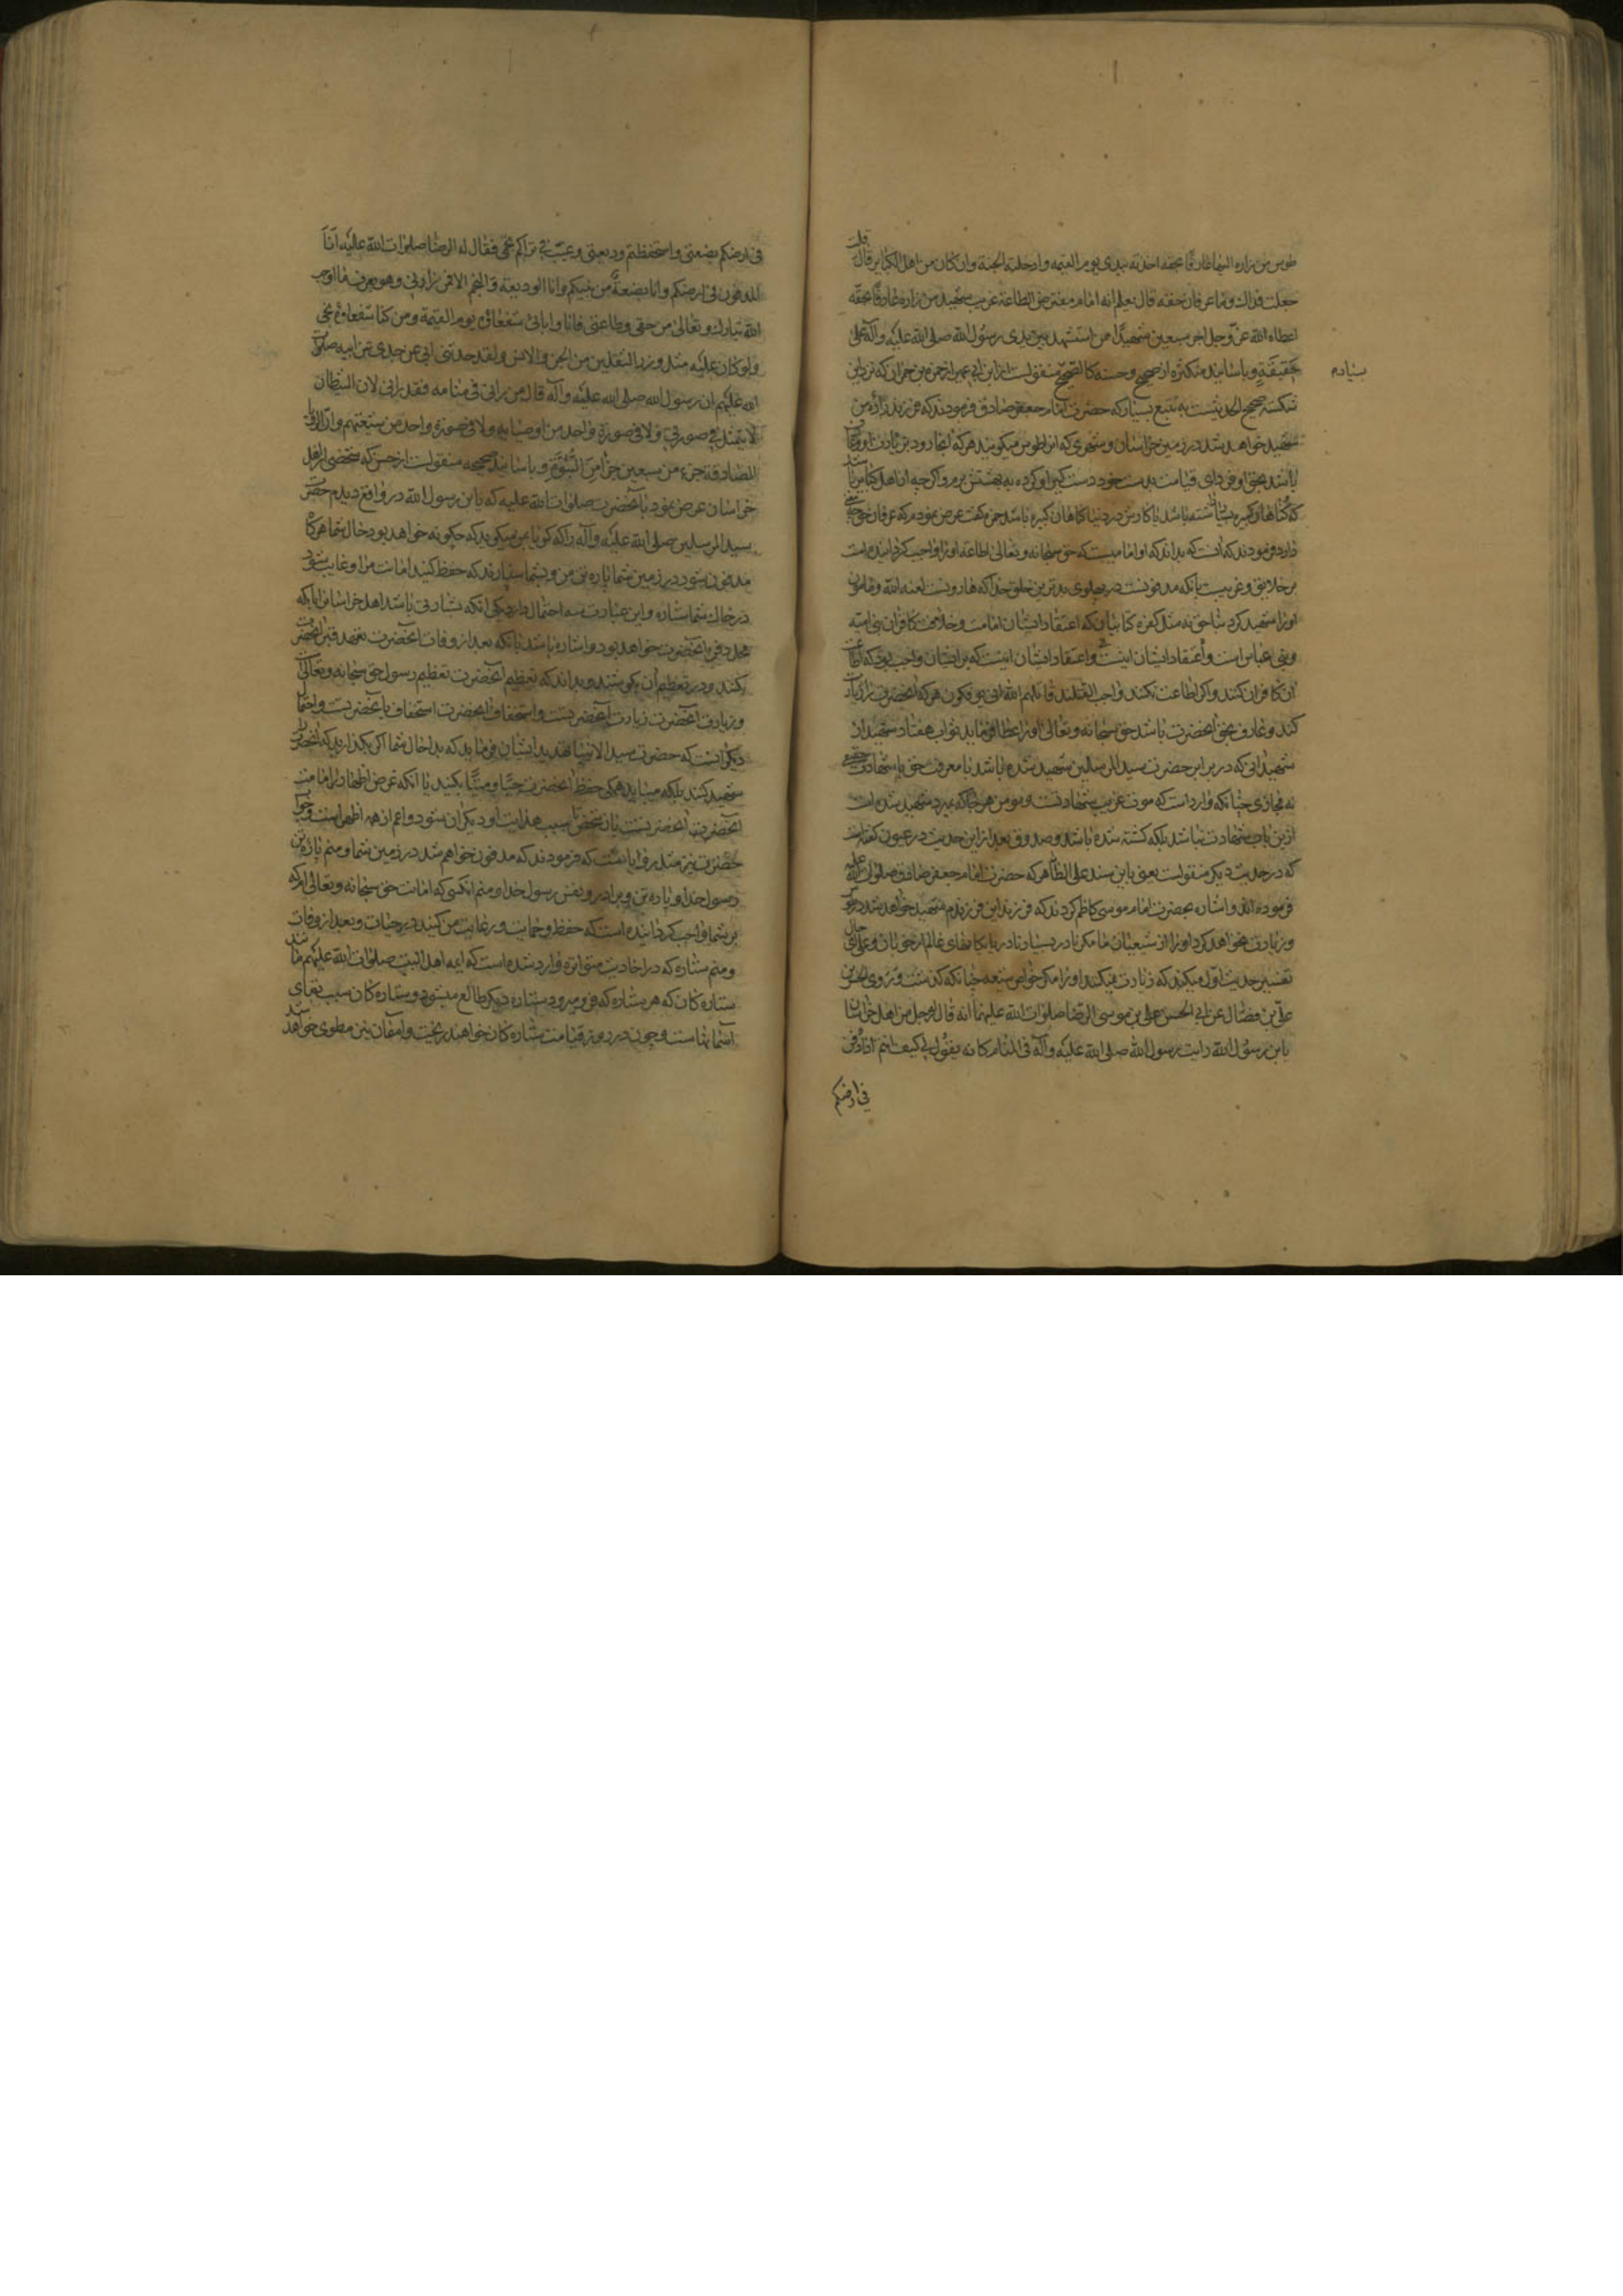 طوس من زاره اليها عارفا بحقه اخذته بيدى يوم القيمة وادخلته الجنة وان كان من اهل الكبائر قال قلت
جعلت فداك وما عرفان حقه قال يعلم انه امام مفترض الطاعة غريب شهيد من زاره عارفا بحقه
اعطاه الله عز وجل اجر سبعين شهيدا ممن استشهد بين يدى رسول الله صلى الله عليه وآله على
حقيقة و باسانيد متكثره از صحيح وحسنه كالصحيح منقولست از ابن ابى عمير از حمزه بن حمران كه نزد اين
شكسته صحيح الحديثست به تتبع بسيار كه حضرت امام جعفر صادق فرمودند كه فرزند زاده من
شهيد خواهد شد در زمين خراسان و شهرى كه انرا طوس ميكويند هر كه انجا رود بزيارت او و عارف
باشد بحق او فرداى قيامت بدست خود دست كيرى او كرده به بهشتش برم و اكر چه از اهل كباير باشد
كه كناهان كبيره بسيار داشته باشد يا كارش در دنيا كناهان كبيره باشد حمزه كفت عرض نمودم كه عرفان حق چه معنى
دارد فرمودند كه آنست كه بداند كه او اماميست كه حق سبحانه وتعالى اطاعه او را واجب كردانيده است
بر خلايق و غريبست بانكه مدفونست در پهلوى بدترين خلق خدا كه هارونست لعنه الله و مامون
او را شهيد كرد بناحق نه مثل كفره كتابيان كه اعتقاد ايشان امامت و خلافت كافران بنى اميه
وبنى عباس است و اعتقاد ايشان اينست كه بر ايشان واجب بود كه اطاعت
آن كافران كنند و اكر اطاعت نكنند واجب القتلند قاتلهم الله انى يوفكون هر كه آنحضرت را زيارت
كند و عارف بحق آنحضرت باشد حق سبحانه و تعالى او را عطا فرمايد ثواب هفتاد شهيد از
شهيدانى كه در برابر حضرت سيد المرسلين شهيد شده باشد با معرفت حق يا شهادت حقيقى
نه مجازى چنانكه وارداست كه موت غريب شهادتست و مومن هر جا كه بميرد شهيد شده است
ازين باب شهادت نباشد بلكه كشته شده باشد و صدوق بعد از اين حديث در عيون كفته است
كه در حديث ديكر منقولست يعنى باين سند على الظاهر كه حضرت امام جعفر صادق صلوات الله عليه
فرموده اند و اشاره بحضرت امام موسى كاظم كردند كه فرزند اين فرزندم شهيد خواهد شد در
و زيارت نخواهد كرد او را از شيعيان ما مكر نادر بسيار نادر
تفسير حديث اول ميكند كه زيارت نميكند او را مكر خواص شيعه چنانكه كذشت و روى الحسن
على بن فضال عن ابى الحسن على بن موسى الرضا صلوات الله عليهما انه قال له رجل من اهل خراسان
يا بن رسول الله رايت رسول الله صلى الله عليه وآله فى المنام كانه يقول لى كيف انتم اذا دفن
فى ارضكم
فى ارضكم بضعتى واستحفظتم وديعتى وغيب فى ثراكم نجمى فقال له الرضا صلوات الله عليه انا
المدفون فى ارضكم وانا بضعة من نبيكم وانا الوديعة والنجم الا فمن زارنى وهو يعرف ما اوجب
الله تبارك وتعالى من حقى وطاعتى فانا وابائى شفعاؤه يوم القيمة ومن كنا شفعاؤه نجى
ولو كان عليه مثل وزر الثقلين من الجن والانس ولقد حدثنى ابى عن جدى عن ابيه صلوات
الله عليهم ان رسول الله صلى الله عليه وآله قال من رانى فى منامه فقد رانى لان الشيطان
لا يتمثل فى صورتى ولا فى صورة واحد من اوصيائى ولا فى صورة واحد من شيعتهم وان الرؤيا
الصادقة جزء من سبعين جزأ من النبوة و باسانيد صحيحه منقولست از حسن كه شخصى از اهل
خراسان عرض نمود بآنحضرت صلوات الله عليه كه يا بن رسول الله در واقع ديدم حضرت
سيد المرسلين صلى الله عليه وآله را كه كويا بمن ميكويد كه چكونه خواهد بود حال شما هر كاه
مدفون شود در زمين شما پاره تن من و بشما سپارند كه حفظ كنيد امانت مرا و غايب شود
در خاك شما ستاره و اين عبارت سه احتمال دارد يكى انكه بشارتى باشد اهل خراسان را بانكه
محل دفن آنحضرت خواهد بود و اشاره باشد بانكه بعد از وفات آنحضرت تعهد قبر آنحضرت
بكنند و در تعظيم آن بكوشند و بدانند كه تعظيم آنحضرت تعظيم رسول حق سبحانه وتعالى
و زيارت آنحضرت زيارت آنحضرتست و استخفاف آنحضرت استخفاف بآنحضرتست و احتمال
ديكر آنست كه حضرت سيد الانبيا تهديد ايشان فرمايد كه بدا حال شما اكر بكذاريد كه آنحضرت را
شهيد كنند بلكه ميبايد همكى حفظ آنحضرت حيا و ميتا بكنيد يا آنكه غرض اظهار امامت
آنحضرتست بان شخص تا سبب هدايت او و ديكران شود و اعم از همه اظهر است و جواب
حضرت نيز مثل روايا تست كه فرمودند كه مدفون خواهم شد در زمين شما و منم پاره تن
رسول خدا و پاره تن و برادر و نفس رسول خدا و منم آنكسى كه امانت حق سبحانه وتعالى ام كه
بر شما واجب كردانيده است كه حفظ و حمايت و رعايت من كنيد در حيات و بعد از وفات
و منم ستاره كه در احاديث متواتره وارد شده است كه ايمه اهل البيت صلوات الله عليهم مانند
ستاره كان كه هر ستاره كه فرو ميرود ستاره ديكر طالع ميشود و ستاره كان سبب بقاى
آسمانهاست و چون در روز قيامت ستاره كان خواهند ريخت و آسمان نيز مطوى خواهد شد